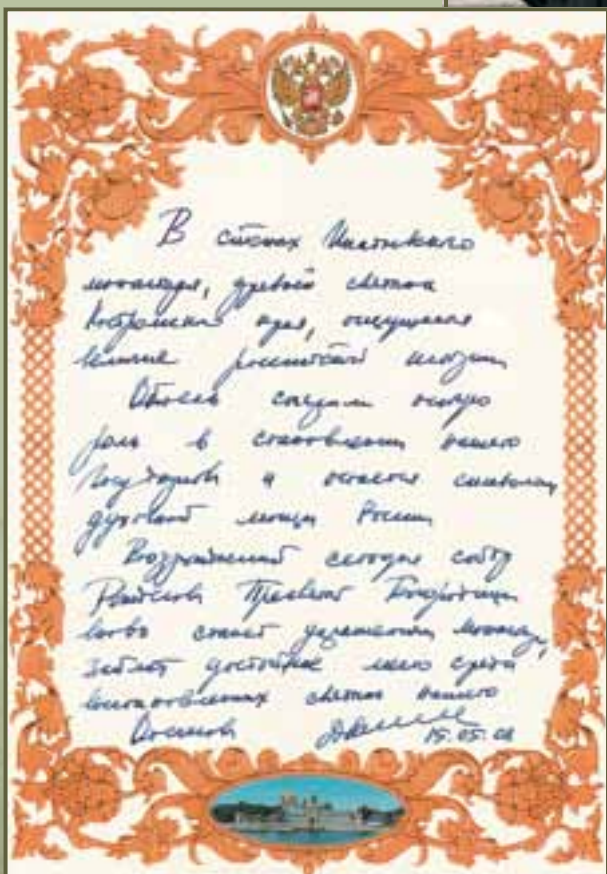 В стенах Ипатьевского
монастыря, древней святыни
Костромского края, ощущаешь
величие российской истории
Обитель сыграла особую
роль в становлении нашего
Государства и остается символом
духовной мощи России
Возрождённый сегодня собор
Рождества Пресвятой Богородицы
вновь станет украшением монастыря,
займет достойное место среди
восстановленных святынь нашего
Отечества
15.05.08